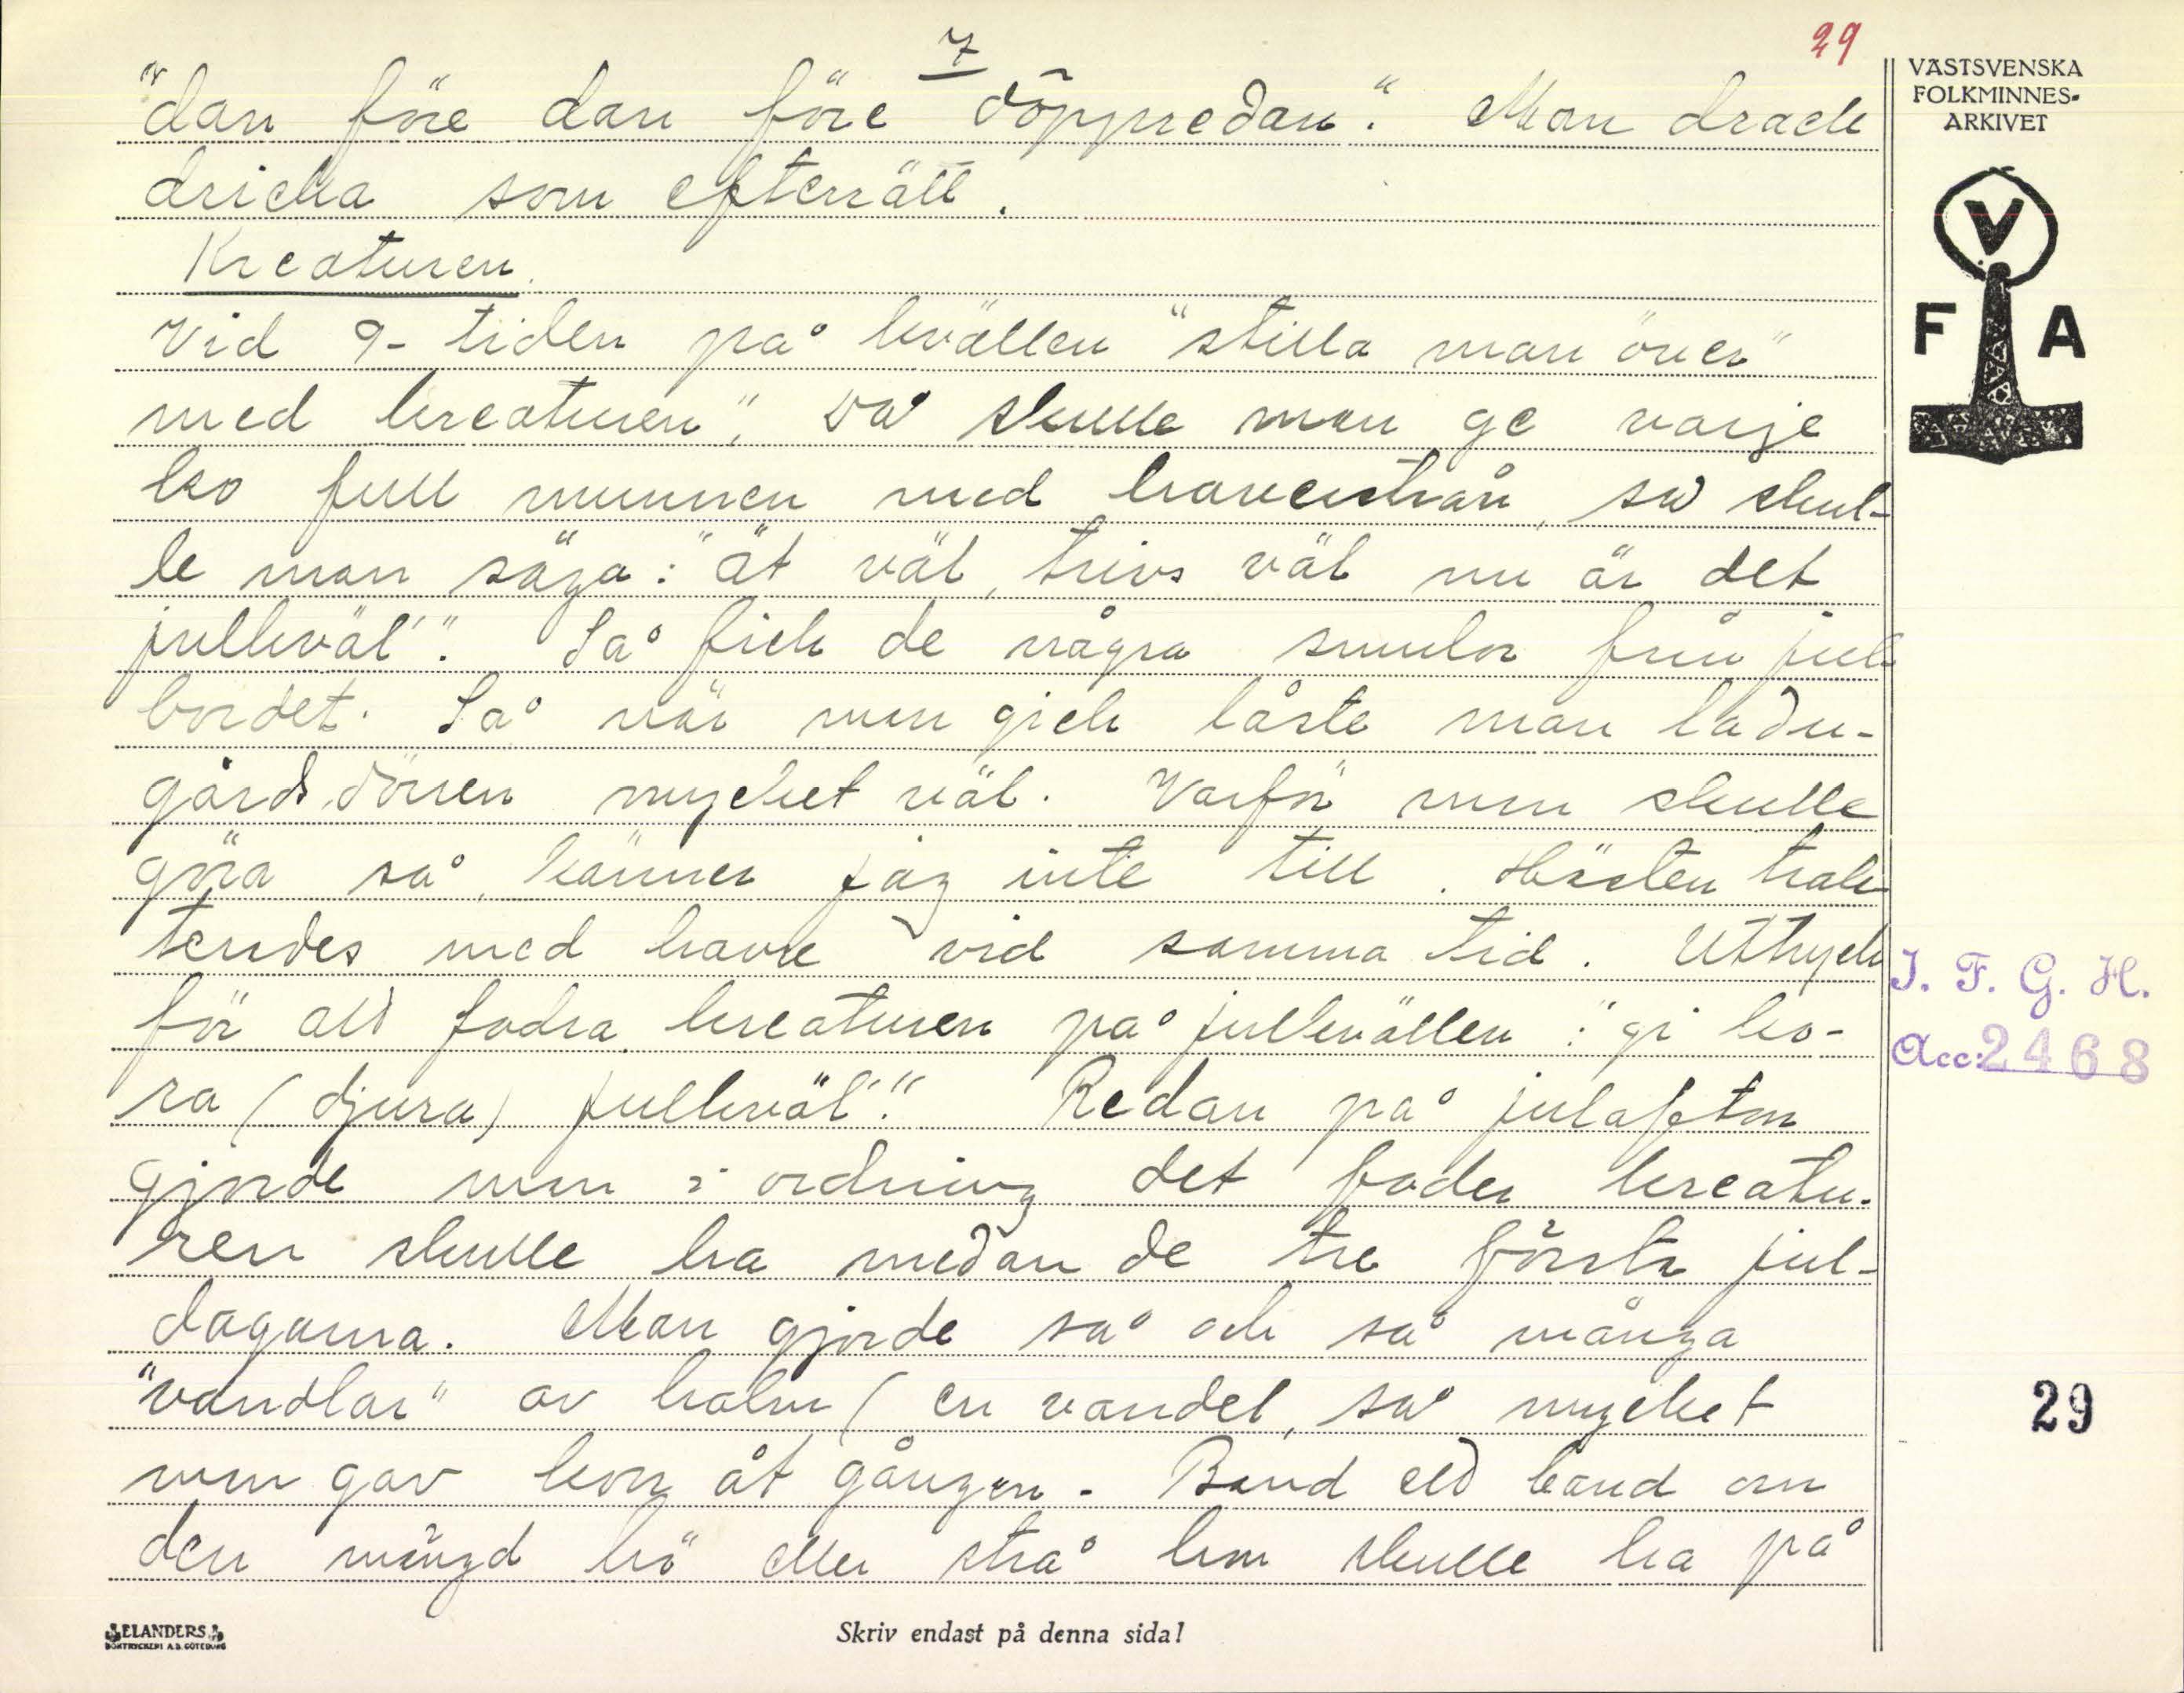 7
29
"dan före dan före döppredan". Man drack
dricka som efterrätt.
Kreaturen.
Vid 9-tiden på kvällen "stilla man över"
med kreaturen". Då skulle man ge varje
ko full munnen med havrestrån, så skul-
le man säga: "ät väl, trivs väl nu är det
julkväl'". Så fick de några smulor från jul
bordet. Så när man gick låste man ladu-
gårdsdörren mycket väl. Varför man skulle
göra så, känner jag inte till. Hästen trak
terades med havre vid samma tid. Uttryck
för att fodra kreaturen på julkvällen: "gi ko-
ra (djura) julkväl'". Redan på julafton
gjorde man i ordning det foder kreatu-
ren skulle ha medan de tre första jul-
dagarna. Man gjorde så och så många
"vandlar" av halm (en vandel, så mycket
man gav kon åt gången. Band ett band om
den mängd hö eller strå kon skulle ha på
VÄSTSVENSKA
FOLKMINNES-
ARKIVET
V
F A
I. F. G. H.
Acc: 2468
29
ELANDERS
BOKTRYCKERI A.B. GÖTEBORG
Skriv endast på denna sida!